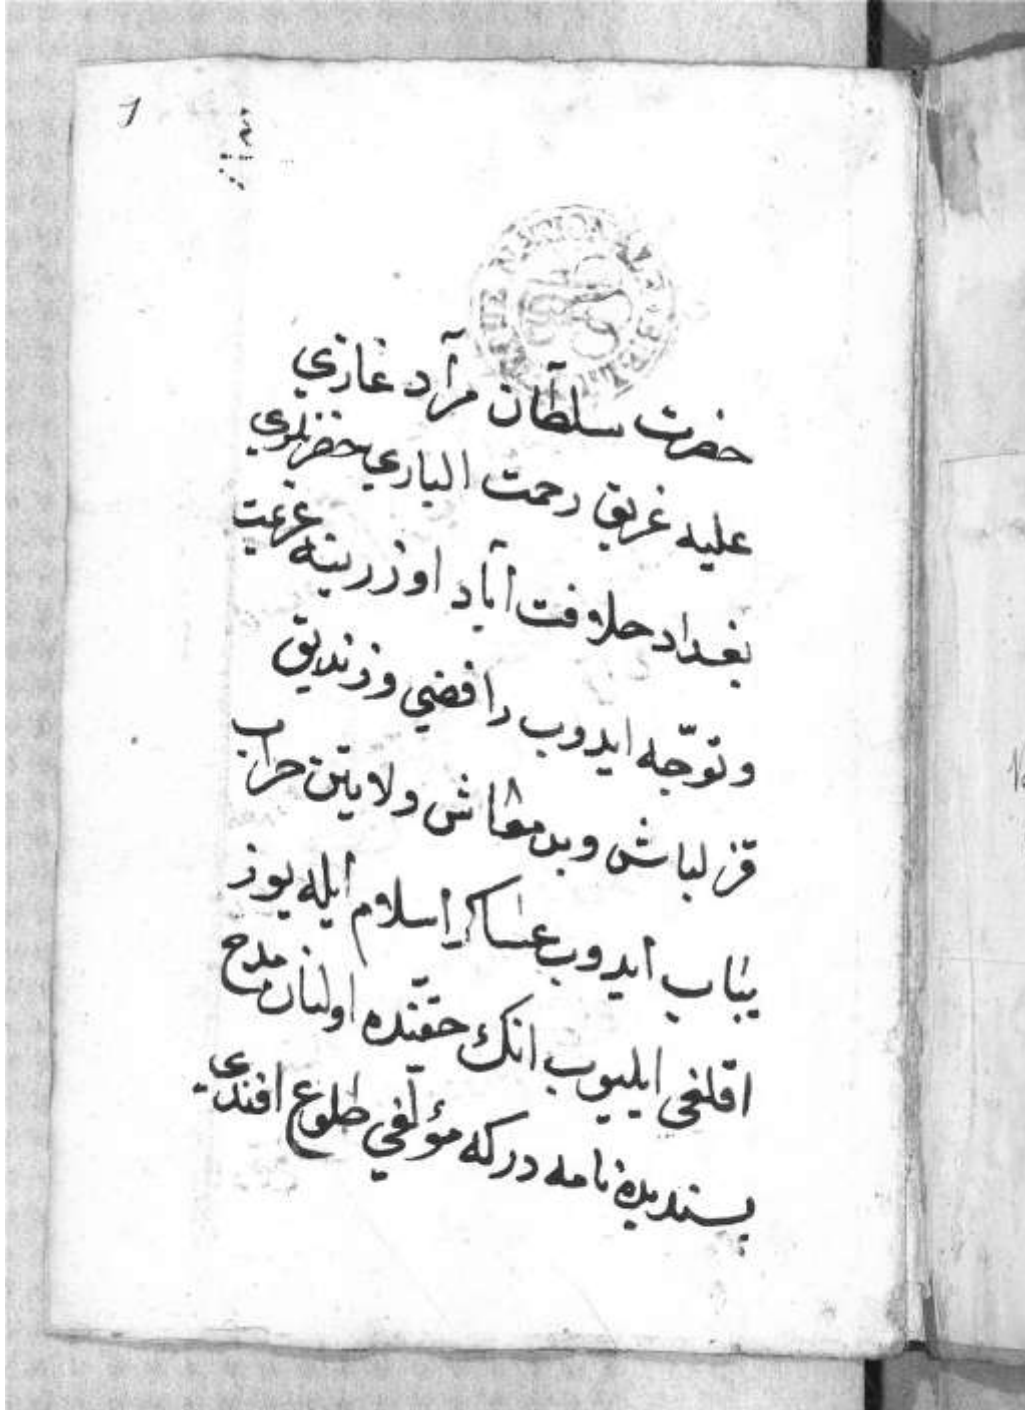 1
حضرت سلطان مرآد غازي
عليه غريق رحمت الباري حضرتلري
بغداد حلافت آباد اوزرينه عزيمت
و توجّه ايدوب رافضي و زنديق
قزلباش و بد معاش ولايتن حراب
يباب ايدوب عساكر اسلام ايله يوز
اقلغى ايليوب انك حقّنده اولنان مدح
پسنديده نامه در كه مؤلّفي طلوع افندي